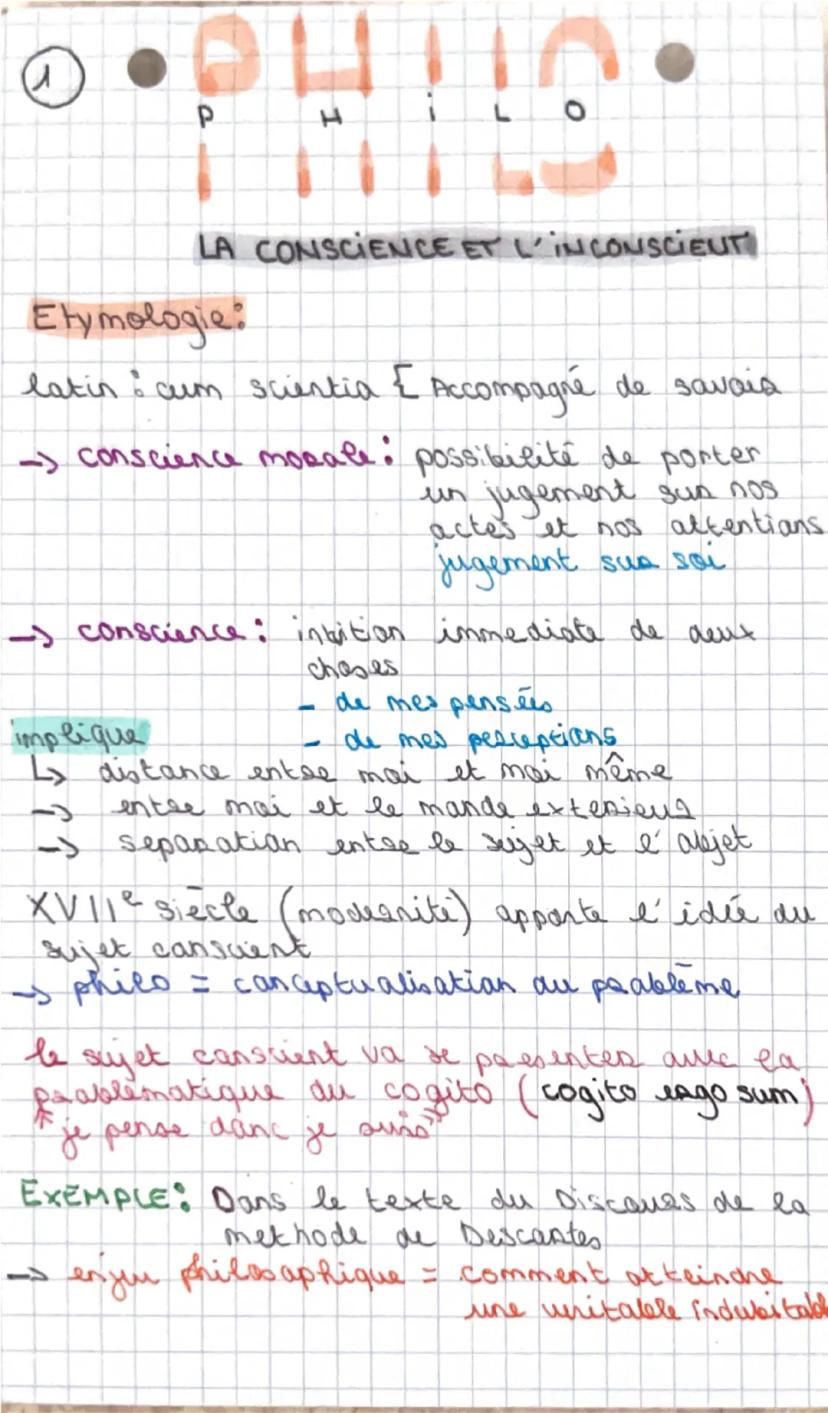 1
PHILO
P H i L O
LA CONSCIENCE ET L'INCONSCIENT
Etymologie:
latin : cum scientia { Accompagné de savoir
-> conscience morale: possibilité de porter
un jugement sur nos
actes et nos attentions
jugement sur soi
-> conscience: intuition immediate de deux
choses
- de mes pensées
implique - de mes perceptions
↳ distance entre moi et moi même
-> entre moi et le monde exterieur
-> separation entre le sujet et l'objet
XVIIe siècle (modernité) apporte l'idée du
sujet conscient
-> philo = conceptualisation du problème
le sujet conscient va se presenter avec la
problèmatique du cogito (cogito ergo sum)
"je pense donc je suis"
EXEMPLE: Dans le texte du Discours de la
methode de Descartes
-> enjeu philosophique = comment atteindre
une veritable indubitable